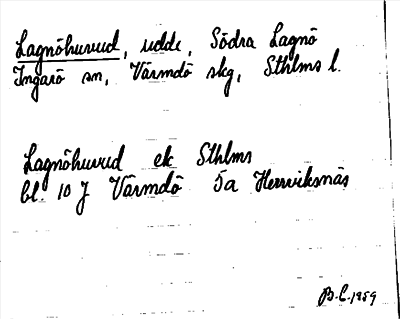 Lagnöhuvud, udde, Södra Lagnö
Ingarö sn, Värmdö skg, Sthlms l.
Lagnöhuvud ek Sthlms
bl. 10 J Värmdö 5a Herrviksnäs
B.C. 1959